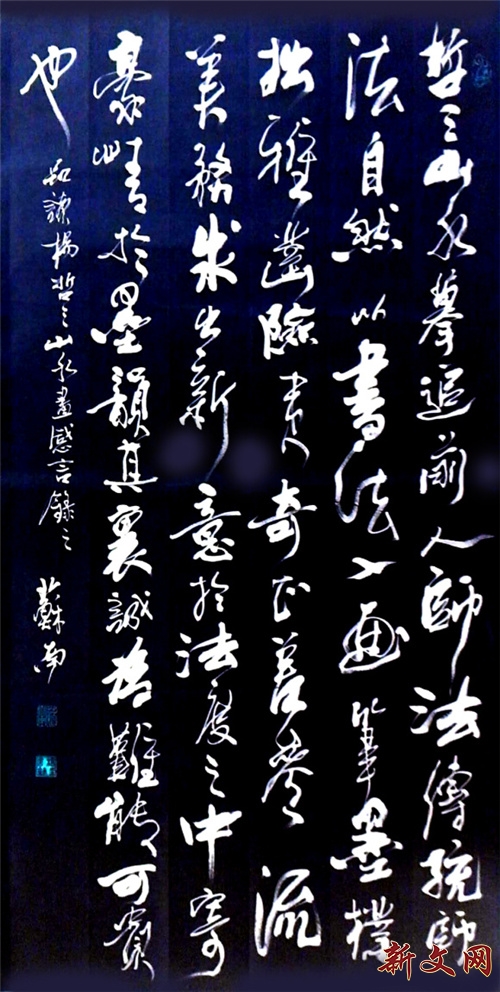 哲之山水摹追前人師法傳統師
法自然以書法入画筆墨樸
拙雅險夷奇正流
美務求出新意於法度之中寄
豪情於墨韻其裏誠為難能可貴
也
品讀楊哲之山水畫感言錄之
蘇南
新文网